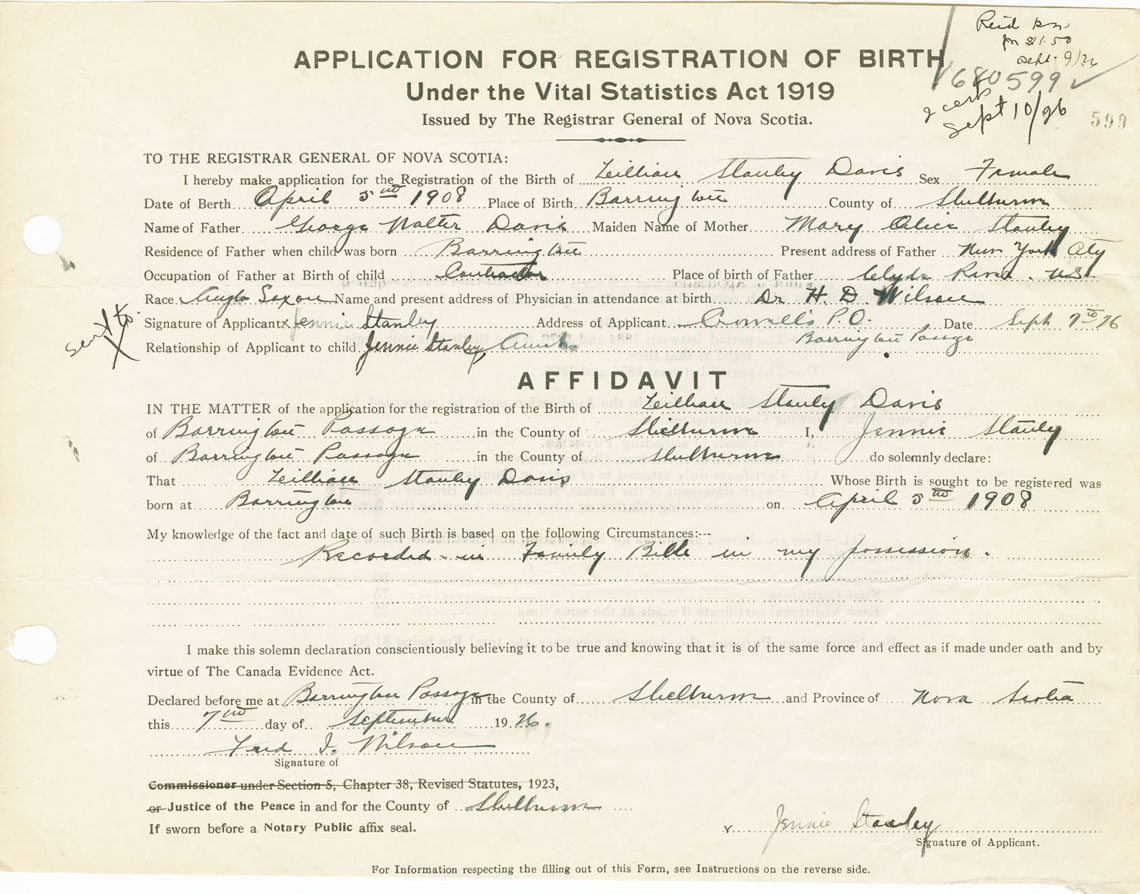 APPLICATION FOR REGISTRATION OF BIRTH
Under the Vital Statistics Act 1919
Issued by The Registrar General of Nova Scotia.
for $1.50
Sept. 9/26
680599
2 certs
Sept 10/26
599
TO THE REGISTRAR GENERAL OF NOVA SCOTIA:
I hereby make application for the Registration of the Birth of Lillian Stanley Davis Sex Female
Date of Berth April 5th 1908 Place of Birth Barrington County of Shelburne
Name of Father George Walter Davis Maiden Name of Mother Mary Alice Stanley
Residence of Father when child was born Barrington Present address of Father New York City
Occupation of Father at Birth of child Contractor Place of birth of Father Clyde River. N.S.
Race Anglo Saxon Name and present address of Physician in attendance at birth Dr H. D. Wilson
Signature of Applicant x Jennie Stanley Address of Applicant Crowells P.O. Date Sept 7th 26
Barrington Passage
Relationship of Applicant to child. Jennie Stanley Aunt.
AFFIDAVIT
IN THE MATTER of the application for the registration of the Birth of Lillian Stanley Davis
of Barrington Passage in the County of Shelburne I, Jennie Stanley
of Barrington Passage in the County of Shelburne do solemnly declare:
That Lillian Stanley Davis Whose Birth is sought to be registered was
born at Barrington on April 5th 1908
My knowledge of the fact and date of such Birth is based on the following Circumstances:--
Recorded in Family Bible in my possession.
I make this solemn declaration conscientiously believing it to be true and knowing that it is of the same force and effect as if made under oath and by
virtue of The Canada Evidence Act.
Declared before me at Barrington Passage in the County of Shelburne and Province of Nova Scotia
this 7th day of September 1926.
Fred I. Wilson
Signature of
Commissioner under Section 5, Chapter 38, Revised Statutes, 1923,
or Justice of the Peace in and for the County of Shelburne
If sworn before a Notary Public affix seal.
Jennie Stanley
Signature of Applicant.
For Information respecting the filling out of this Form, see Instructions on the reverse side.